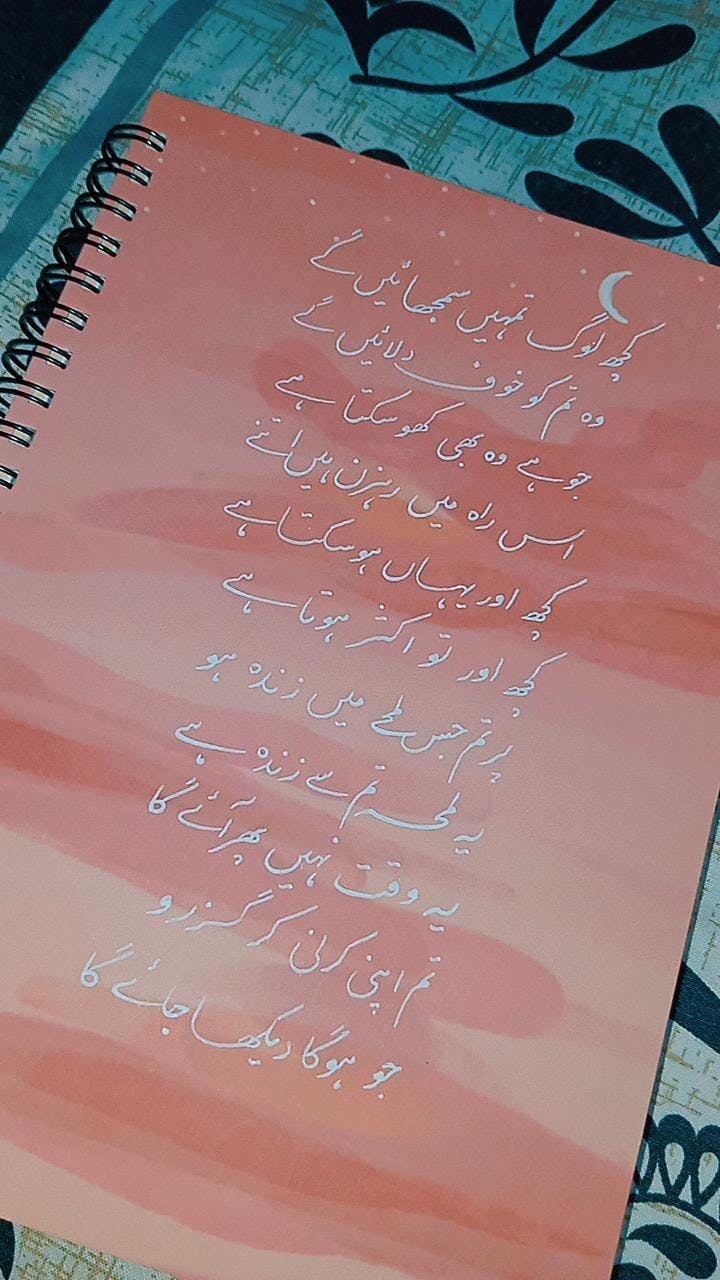 کچھ لوگ تمہیں سمجھائیں گے
وہ تم کو خوف دلائیں گے
جو ہے وہ بھی کھو سکتا ہے
اس راہ میں رہزن ہیں اتنے
کچھ اور یہاں ہو سکتا ہے
کچھ اور تو اکثر ہوتا ہے
پر تم جس لمحے میں زندہ ہو
یہ لمحہ تم سے زندہ ہے
یہ وقت نہیں پھر آئے گا
تم اپنی کرنی کر گزرو
جو ہوگا دیکھا جائے گا